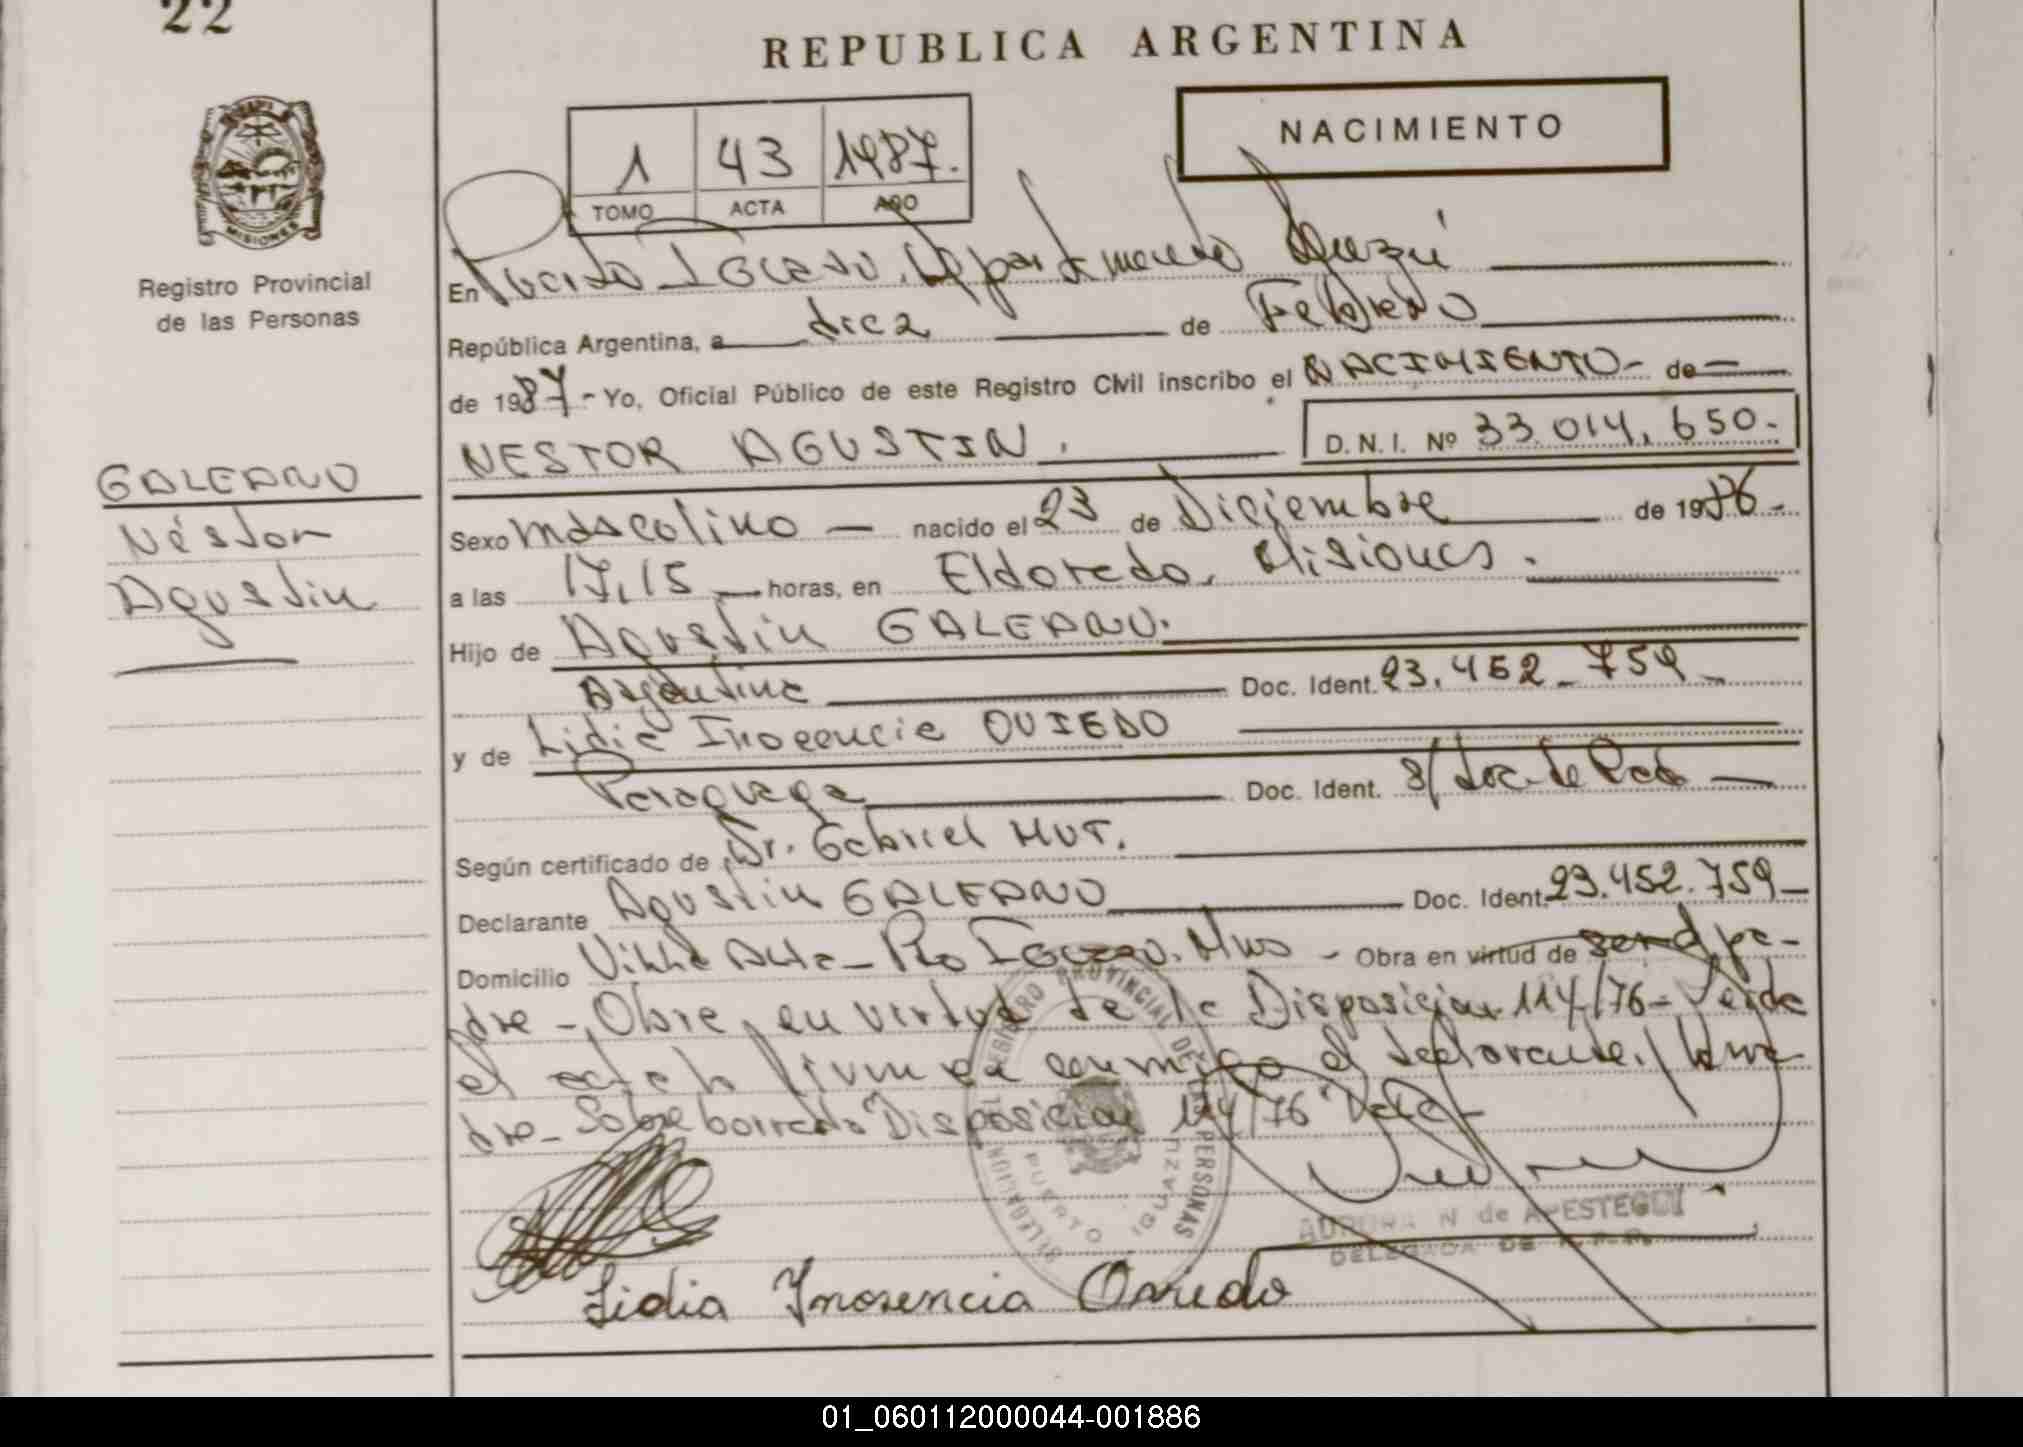 22
REPUBLICA ARGENTINA
NACIMIENTO
1 43 1987.
TOMO ACTA AÑO
MISIONES
Registro Provincial
de las Personas
En Puerto Iguazú, Departamento Iguazú
República Argentina, a diez de Febrero
de 1987 - Yo, Oficial Público de este Registro Civil inscribo el NACIMIENTO - de
NESTOR AGUSTIN. D. N. I. Nº 33.014.650.-
GALEANO
Néstor
Agustin
Sexo Masculino - nacido el 23 de Diciembre de 1986 -
a las 17,15 horas, en Eldorado, Misiones.
Hijo de Agustin GALEANO.
Argentina Doc. Ident. 23.452.759
y de Lidia Inocencia OVIEDO
Paraguaya Doc. Ident. S/ doc. de
Según certificado de Dr. Gabriel HUT.
Declarante Agustin GALEANO Doc. Ident. 23.452.759
Domicilio Villa Alta - Pto Iguazú. Mnes - Obra en virtud de ser el pa-
dre - Obra, en virtud de la Disposicion 114/76 - Leida
el acta la firman conmigo el declarante, y la ma
dre - Sobre borrado Disposicion 114/76 Vale -
REGISTRO PROVINCIAL DE LAS PERSONAS
DELEGACION
PUERTO IGUAZU
AURORA N de APESTEGUI
DELEGADA DE R.P.P.
Lidia Inosencia Oviedo
01_060112000044-001886